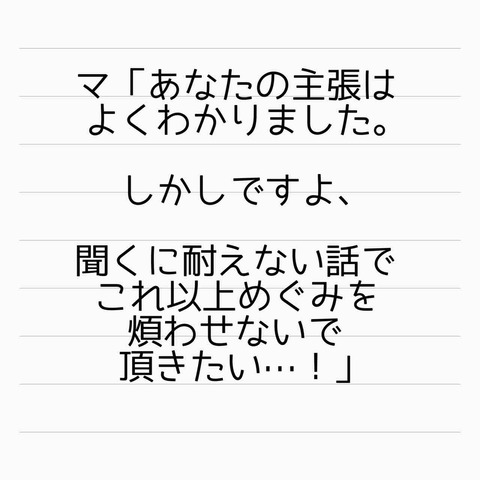 マ「あなたの主張は
よくわかりました。
しかしですよ、
聞くに耐えない話で
これ以上めぐみを
煩わせないで
頂きたい…！」